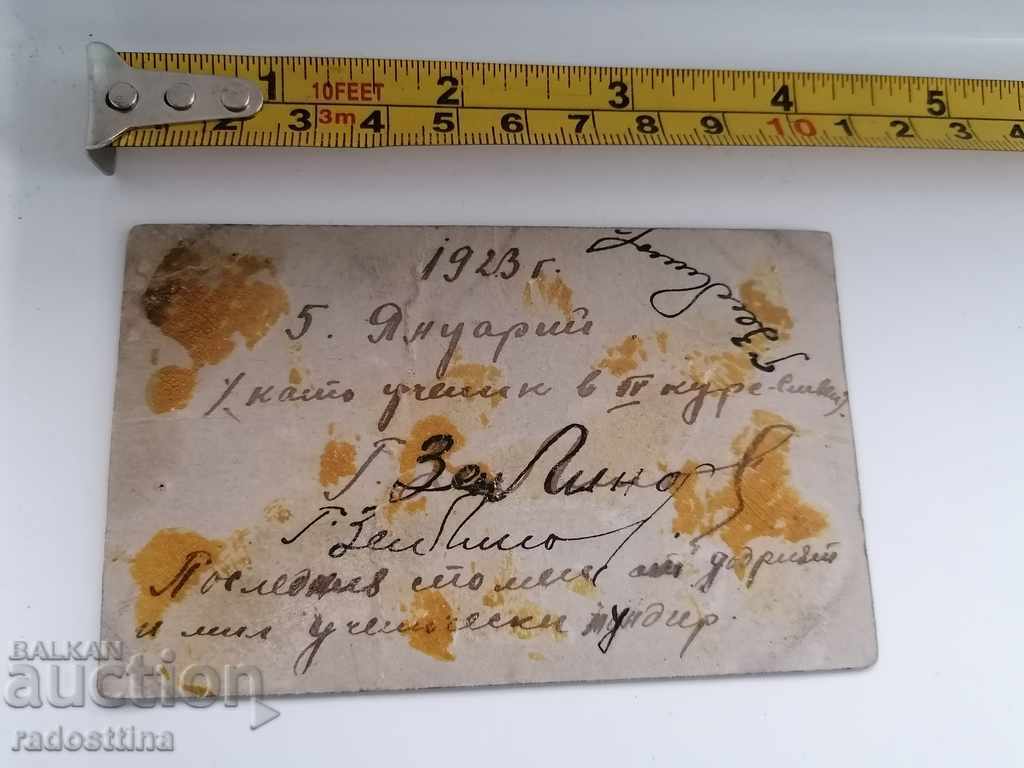 1 10FEET 2 3 4 5
2 3 3m 4 5 6 7 8 9 10 1 2 3 4
1923 г.
5. Януарий
/(като ученик в IV курс-
Г.
Г.
Последния спомен от добрият
и мил ученически мундир.
BALKAN
auction
radosttina